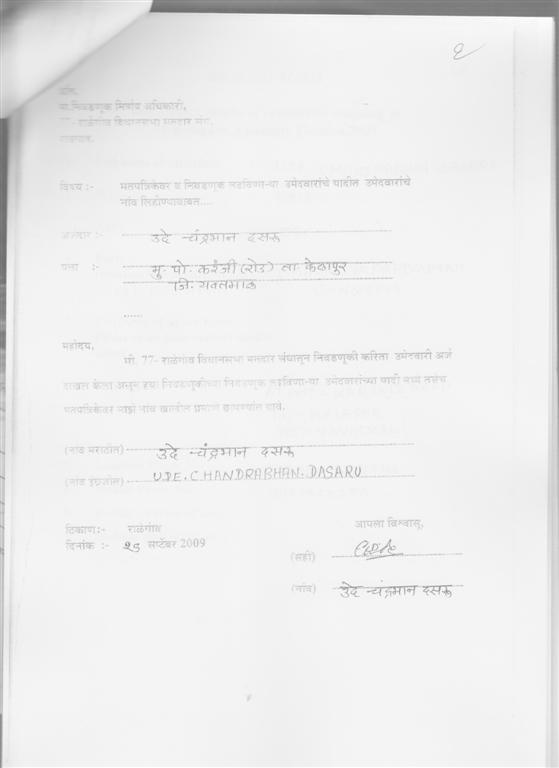 2
प्रति,
मा.निवडणूक निर्णय अधिकारी,
77- राळेगांव विधानसभा मतदार संघ,
राळेगांव.
विषय :- मतपत्रिकेवर व निवडणूक लढविणाऱ्या उमेदवारांचे यादीत उमेदवारांचे
नांव लिहीण्याबाबत....
अर्जदार :- उदे चंद्रभान दसरू
पत्ता :- मु. पो. करंजी (रोड) ता. केळापूर
जि. यवतमाळ
......
महोदय,
मी. 77- राळेगांव विधानसभा मतदार संघातून निवडणूकी करिता उमेदवारी अर्ज
दाखल केला असून ह्या निवडणूकीच्या निवडणूक लढविणाऱ्या उमेदवारांच्या यादी मध्ये तसेच
मतपत्रिकेवर माझे नांव खालील प्रमाणे छापण्यांत यावे.
(नांव मराठीत) उदे चंद्रभान दसरू
(नांव इंग्रजीत) UDE. CHANDRABHAN. DASARU
ठिकाण:- राळेगांव आपला विश्वासू,
दिनांक :- 25 सप्टेंबर 2009
(सही)
(नांव) उदे चंद्रभान दसरू